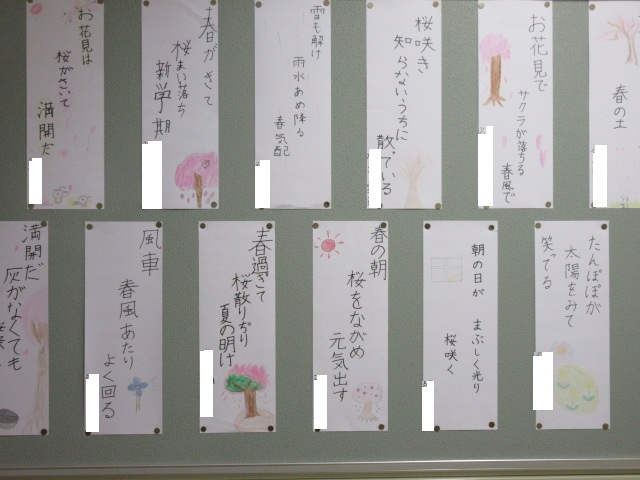 春の土
お花見で
サクラが落ちる
春風で
桜咲き
知らないうちに
散っている
雪も解け
雨水あめ降る
春気配
春がきて
桜まい落ち
新学期
お花見は
桜がさいて
満開だ
たんぽぽが
太陽をみて
笑ってる
朝の日が
まぶしく光り
桜咲く
春の朝
桜をながめ
元気出す
春過ぎて
桜散りぢり
夏の明け
風車
春風あたり
よく回る
満開だ
灰がなくても